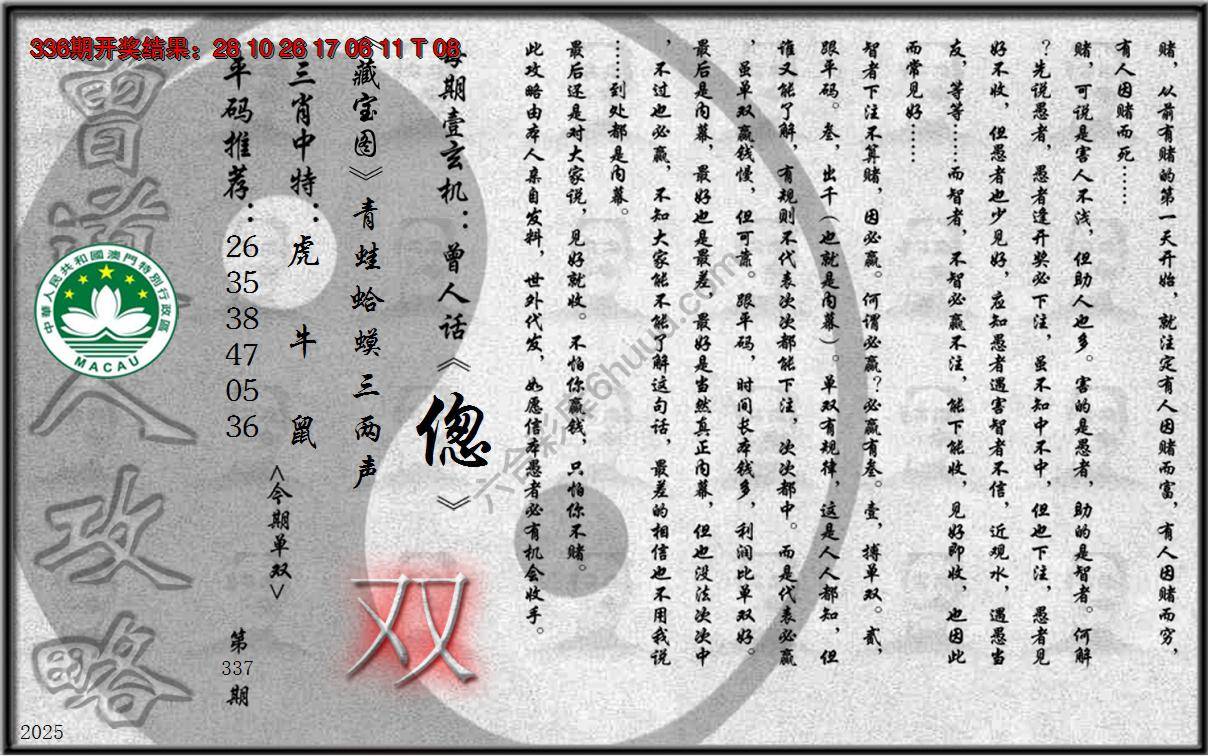 336期开奖结果：28 10 26 17 06 11 T 08
赌，从前有赌的第一天开始，就注定有人因赌而富，有人因赌而穷，
有人因赌而死……
赌，可说是害人不浅，但助人也多。害的是愚者，助的是智者。何解
？先说愚者，愚者逢开奖必下注，虽不知中不中，但也下注，愚者见
好不收，但愚者也少见好，应知愚者遇害智者不信，近观水，遇愚当
友，等等……而智者，不智必赢不注，能下能收，见好即收，也因此
而常见好……
智者下注不算赌，因必赢。何谓必赢？必赢有叁。壹，搏单双。贰，
跟平码。叁，出千（也就是内幕）。单双有规律，这是人人都知，但
谁又能了解，有规则不代表次次都能下注，次次都中。而是代表必赢
，虽单双赢钱慢，但可靠。跟平码，时间长本钱多，利润比单双好。
最后是内幕，最好也是最差，最好是当然真正内幕，但也没法次次中
，不过也必赢，不知大家能不能了解这句话，最差的相信也不用我说
……到处都是内幕。
最后还是对大家说，见好就收。不怕你赢钱，只怕你不赌。
此攻略由本人亲自发料，世外代发，如愿信本愚者必有机会收手。
每期壹玄机：曾人话《偬》
《藏宝图》青蛙蛤蟆三两声
三肖中特：虎 牛 鼠
平码推荐：26 35 38 47 05 36
<今期单双>
双
第337期
曾道人攻略
中華人民共和國澳門特別行政區
MACAU
六合彩库6huuu.com
2025